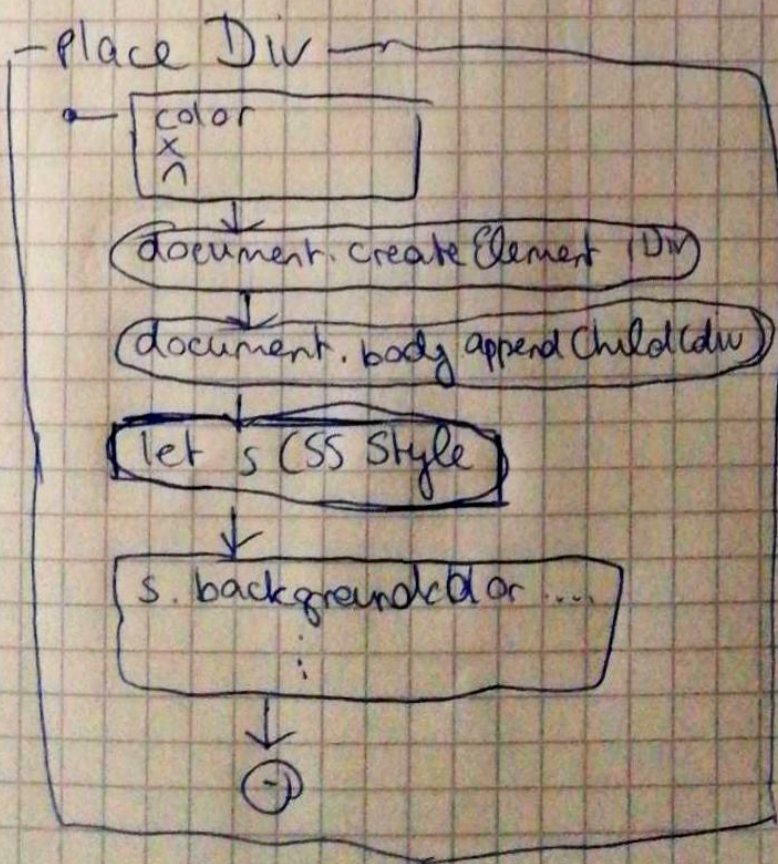 place Div
color
x
n
document. createElement (Div
document. body appendChild(div)
let s CSS Style
s. backgroundcolor ....